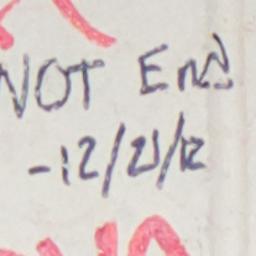 NOT End
-12/21/12